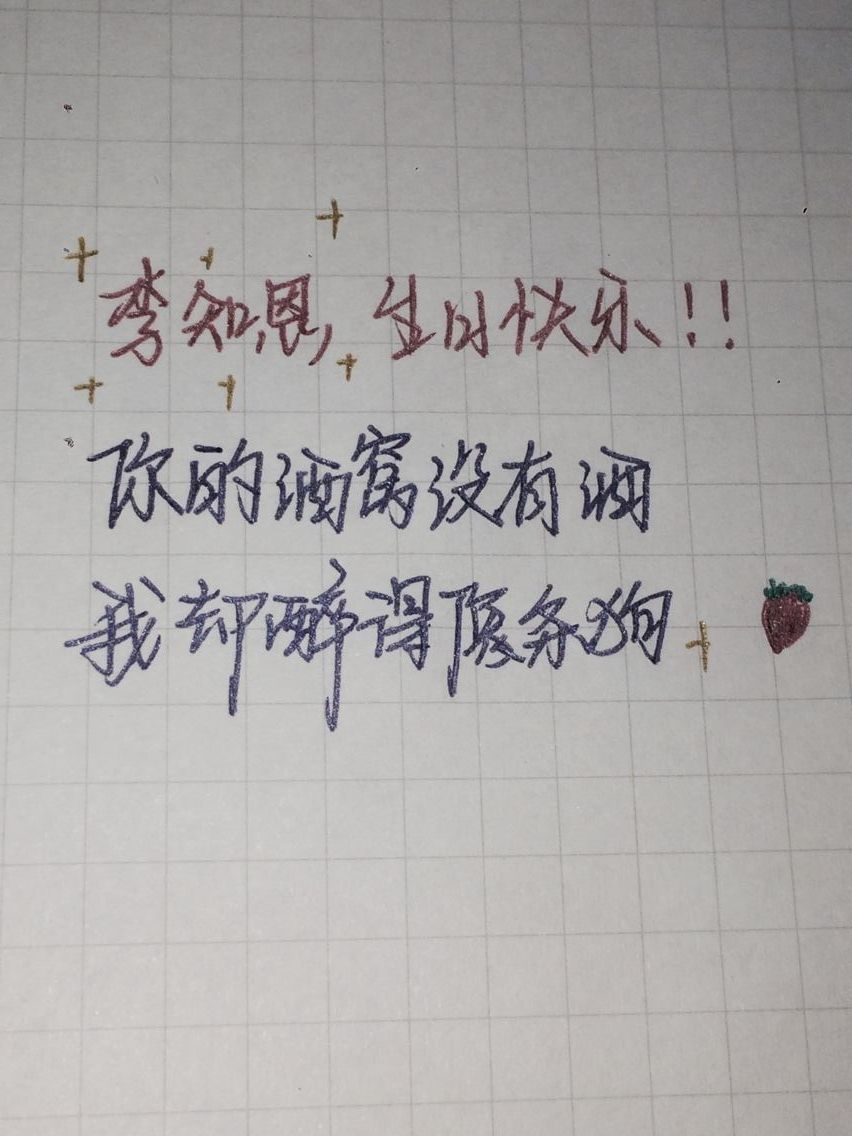 李知恩,生日快乐!!
你的酒窝没有酒
我却醉得像条狗